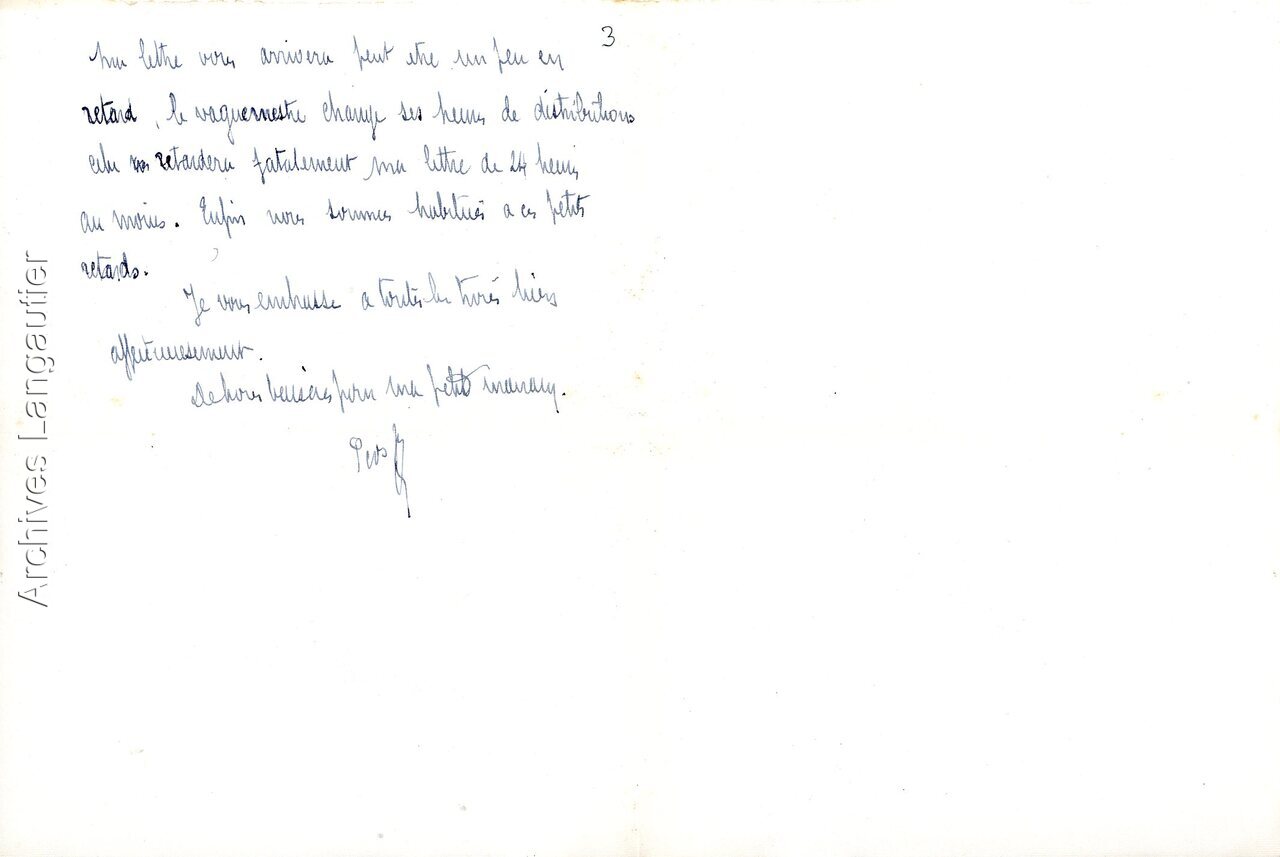 3
Ma lettre vous arrivera peut etre un peu en
retard, le vaguemestre change ses heures de distributions
cela retardera fatalement ma lettre de 24 heures
au moins. Enfin nous sommes habitués a ces petits
retards.
Je vous embrasse a toutes les trois biens
affectueusement.
De bons baisers pour ma petite
Archives Langautier